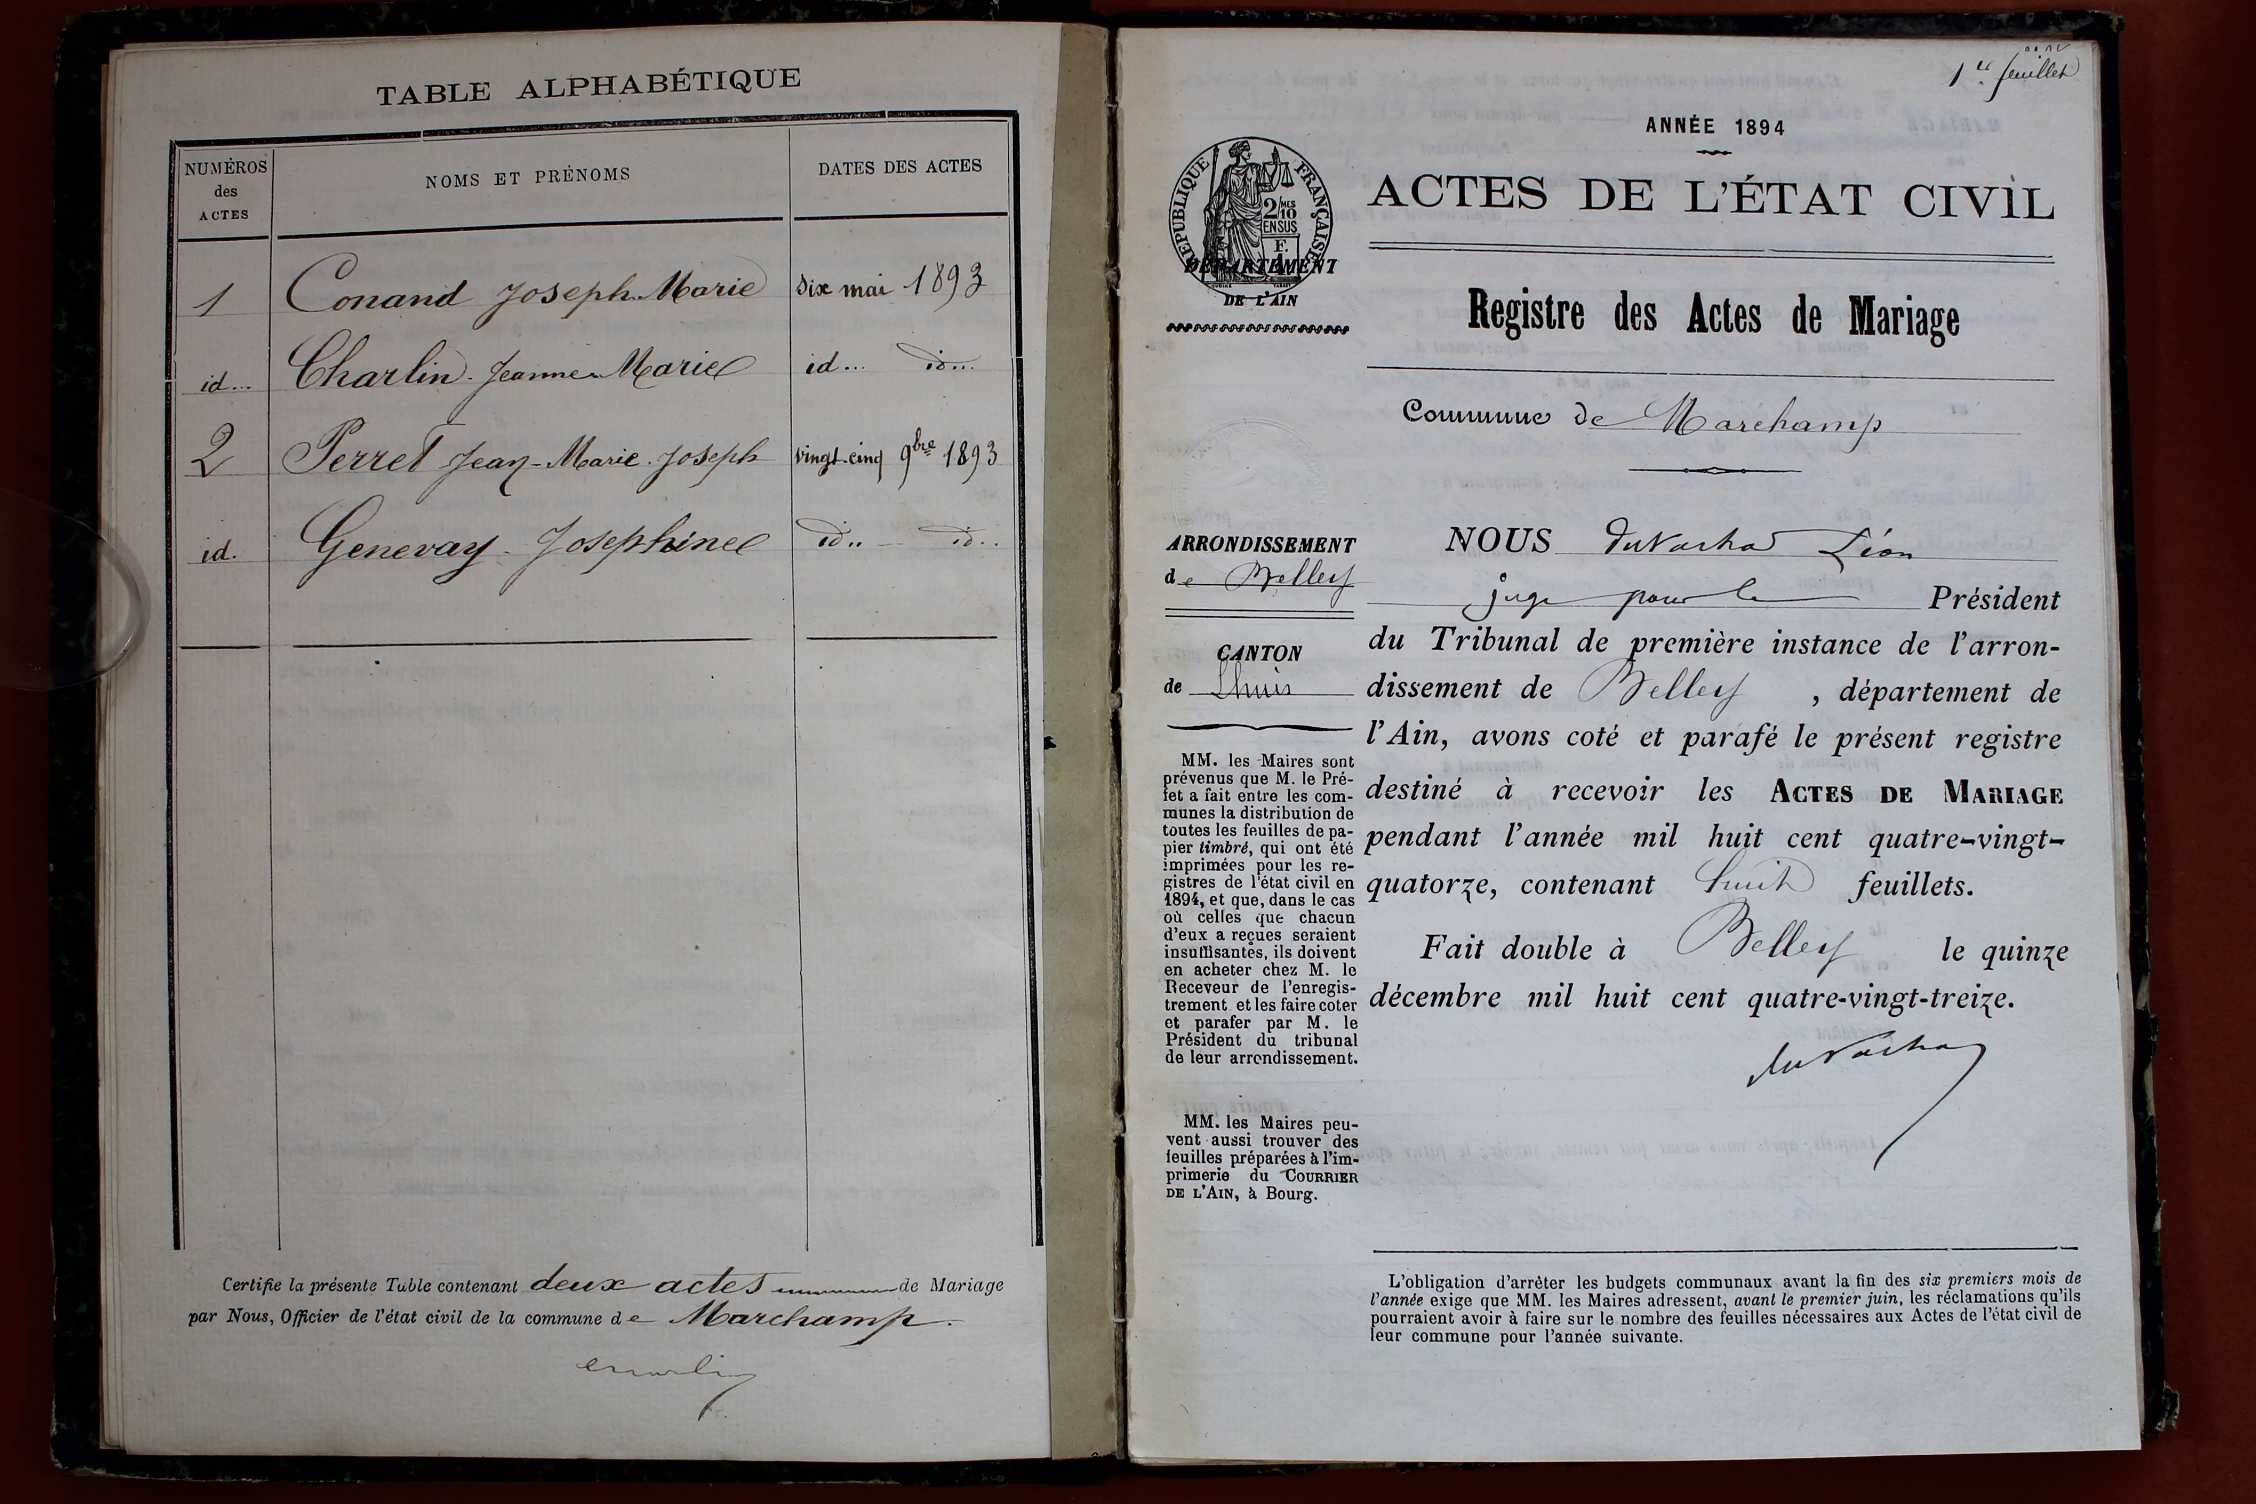 TABLE ALPHABÉTIQUE
NUMÉROS
des
ACTES
NOMS ET PRÉNOMS
DATES DES ACTES
1 Conand Joseph Marie six mai 1893
id... Charlin Jeanne Marie id... id...
2 Perret Jean-Marie Joseph vingt cinq 9bre 1893
id. Genevay Josephine id.. id..
Certifie la présente Table contenant deux actes de Mariage
par Nous, Officier de l'état civil de la commune de Marchamp.
1er feuillet
ANNÉE 1894
RÉPUBLIQUE FRANÇAISE
2/10
MES
EN SUS
F.
DÉPARTEMENT
DE L'AIN
ACTES DE L'ÉTAT CIVIL
Registre des Actes de Mariage
Commune de Marchamp
ARRONDISSEMENT
de Belley
CANTON
de Lhuis
MM. les Maires sont
prévenus que M. le Pré-
fet a fait entre les com-
munes la distribution de
toutes les feuilles de pa-
pier timbré, qui ont été
imprimées pour les re-
gistres de l'état civil en
1894, et que, dans le cas
où celles que chacun
d'eux a reçues seraient
insuffisantes, ils doivent
en acheter chez M. le
Receveur de l'enregis-
trement et les faire coter
et parafer par M. le
Président du tribunal
de leur arrondissement.
MM. les Maires peu-
vent aussi trouver des
feuilles préparées à l'im-
primerie du COURRIER
DE L'AIN, à Bourg.
NOUS Léon
juge pour le Président
du Tribunal de première instance de l'arron-
dissement de Belley, département de
l'Ain, avons coté et parafé le présent registre
destiné à recevoir les ACTES DE MARIAGE
pendant l'année mil huit cent quatre-vingt-
quatorze, contenant huit feuillets.
Fait double à Belley le quinze
décembre mil huit cent quatre-vingt-treize.
L'obligation d'arrêter les budgets communaux avant la fin des six premiers mois de
l'année exige que MM. les Maires adressent, avant le premier juin, les réclamations qu'ils
pourraient avoir à faire sur le nombre des feuilles nécessaires aux Actes de l'état civil de
leur commune pour l'année suivante.